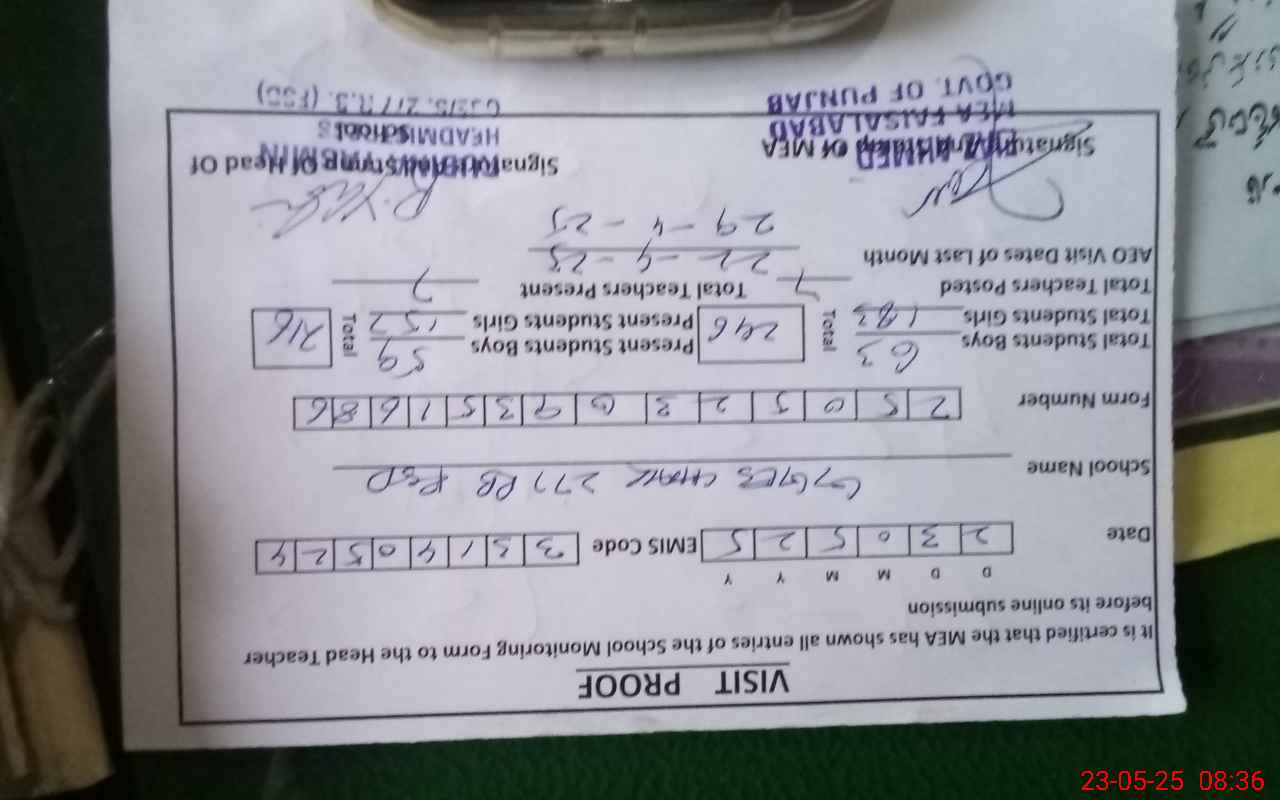 VISIT PROOF
It is certified that the MEA has shown all entries of the School Monitoring Form to the Head Teacher
before its online submission
D D M M Y Y
Date 2 3 0 5 2 5 EMIS Code 3 3 1 4 0 5 2 4
School Name GGPES CHAK 277 RB FSD
Form Number 2 5 0 5 2 3 0 9 3 5 1 6 8 6
Total Students Boys 63 Total 246 Present Students Boys 59 Total 216
Total Students Girls 183 Present Students Girls 157
Total Teachers Posted 7 Total Teachers Present 7
AEO Visit Dates of Last Month 22-4-25
29-4-25
Signature And Stamp Of MEA Signature And Stamp Of Head Of
AHMED School
MEA FAISALABAD HEADMISTRESS
GOVT. OF PUNJAB 277 R.B. (FSD)
23-05-25 08:36